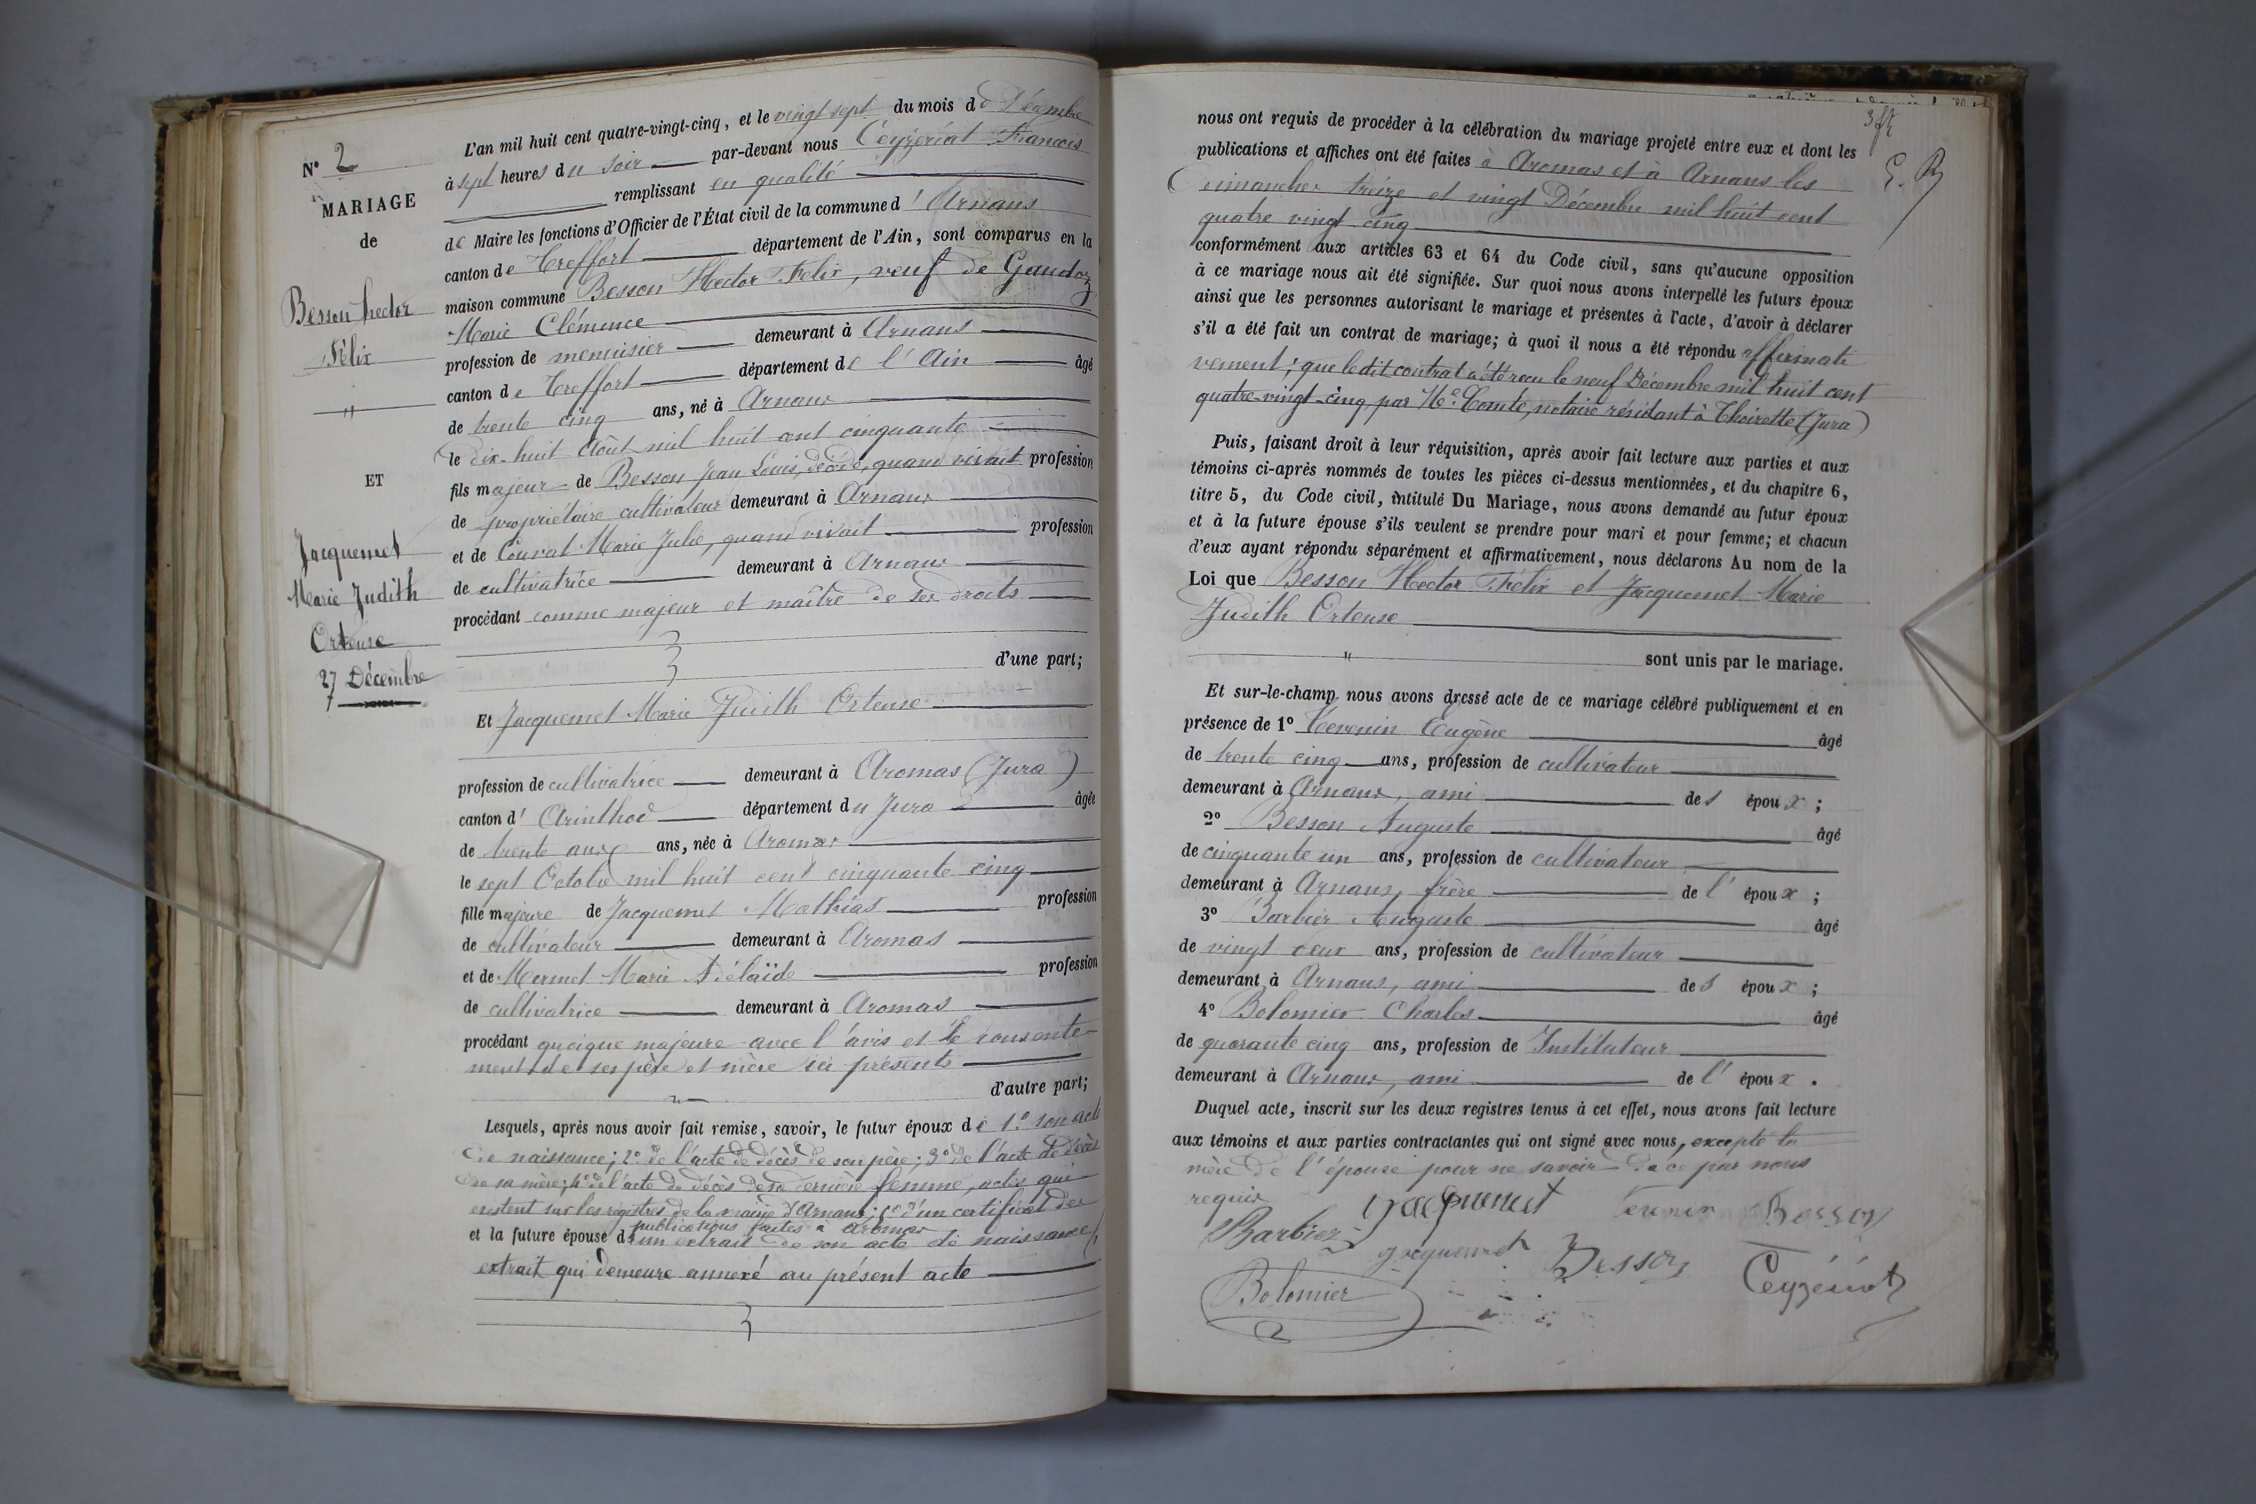 N° 2
MARIAGE
de
Besson hector
Félix
"
ET
Jacquemet
Marie Judith
Ortense
27 Décembre
L'an mil huit cent quatre-vingt-cinq, et le vingt sept du mois de Décembre
à sept heures du soir par-devant nous Ceyzériat François
remplissant en qualité
de Maire les fonctions d'Officier de l'État civil de la commune d'Arnans
canton de Treffort département de l'Ain, sont comparus en la
maison commune Besson Hector Félix, veuf de Gaudoz
Marie Clémence
profession de menuisier demeurant à Arnans
canton de Treffort département de l'Ain âgé
de trente cinq ans, né à Arnans
le dix-huit Août mil huit cent cinquante
fils majeur de Besson Jean Louis, décédé, quand vivait profession
de propriétaire cultivateur demeurant à Arnans
et de Couvat Marie Julie, quand vivait profession
de cultivatrice demeurant à Arnans
procédant comme majeur et maître de ses droits
d'une part;
Et Jacquemet Marie Judith Ortense
profession de cultivatrice demeurant à Aromas (Jura)
canton d'Arinthod département du Jura âgée
de trente ans, née à Aromas
le sept Octobre mil huit cent cinquante cinq
fille majeure de Jacquemet Mathias profession
de cultivateur demeurant à Aromas
et de Mermet Marie Adélaïde profession
de cultivatrice demeurant à Aromas
procédant quoique majeure avec l'avis et le consente-
ment de ses père et mère ici présents
d'autre part;
Lesquels, après nous avoir fait remise, savoir, le futur époux de 1° son acte
de naissance; 2° de l'acte de décès de son père; 3° de l'acte de décès
de sa mère; 4° de l'acte de décès de sa dernière femme, actes qui
existent sur les registres de la mairie d'Arnans; 5° d'un certificat des
publications faites à Aromas
et la future épouse d'un extrait de son acte de naissance,
extrait qui demeure annexé au présent acte
nous ont requis de procéder à la célébration du mariage projeté entre eux et dont les
publications et affiches ont été faites à Aromas et à Arnans les
dimanches treize et vingt Décembre mil huit cent
quatre vingt cinq
conformément aux articles 63 et 64 du Code civil, sans qu'aucune opposition
à ce mariage nous ait été signifiée. Sur quoi nous avons interpellé les futurs époux
ainsi que les personnes autorisant le mariage et présentes à l'acte, d'avoir à déclarer
s'il a été fait un contrat de mariage; à quoi il nous a été répondu affirmati
vement; que ledit contrat a été reçu le neuf Décembre mil huit cent
quatre-vingt-cinq par Me. Comte, notaire résidant à Thoirette (Jura)
Puis, faisant droit à leur réquisition, après avoir fait lecture aux parties et aux
témoins ci-après nommés de toutes les pièces ci-dessus mentionnées, et du chapitre 6,
titre 5, du Code civil, intitulé Du Mariage, nous avons demandé au futur époux
et à la future épouse s'ils veulent se prendre pour mari et pour femme; et chacun
d'eux ayant répondu séparément et affirmativement, nous déclarons Au nom de la
Loi que Besson Hector Félix et Jacquemet Marie
Judith Ortense
" sont unis par le mariage.
Et sur-le-champ nous avons dressé acte de ce mariage célébré publiquement et en
présence de 1° Tevenin Eugène âgé
de trente cinq ans, profession de cultivateur
demeurant à Arnans, ami des époux;
2° Besson Auguste âgé
de cinquante un ans, profession de cultivateur
demeurant à Arnans, frère de l'époux;
3° Barbier Auguste âgé
de vingt deux ans, profession de cultivateur
demeurant à Arnans, ami des époux;
4° Bolomier Charles âgé
de quarante cinq ans, profession de Instituteur
demeurant à Arnans, ami de l'époux.
Duquel acte, inscrit sur les deux registres tenus à cet effet, nous avons fait lecture
aux témoins et aux parties contractantes qui ont signé avec nous, excepté la
mère de l'épouse pour ne savoir de ce par nous
requis
Jacquemet Tevenin Besson
Barbier Jacquemet Besson Ceyzériat
Bolomier